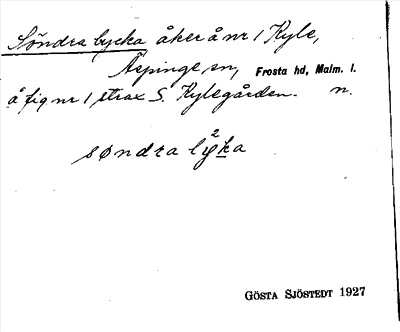 Söndra lycka åker å nr 1 Kyle,
Äspinge sn, Frosta hd, Malm. l.
å fig nr 1 strax S. Kylegården. n.
søndra ly²ka
GÖSTA SJÖSTEDT 1927